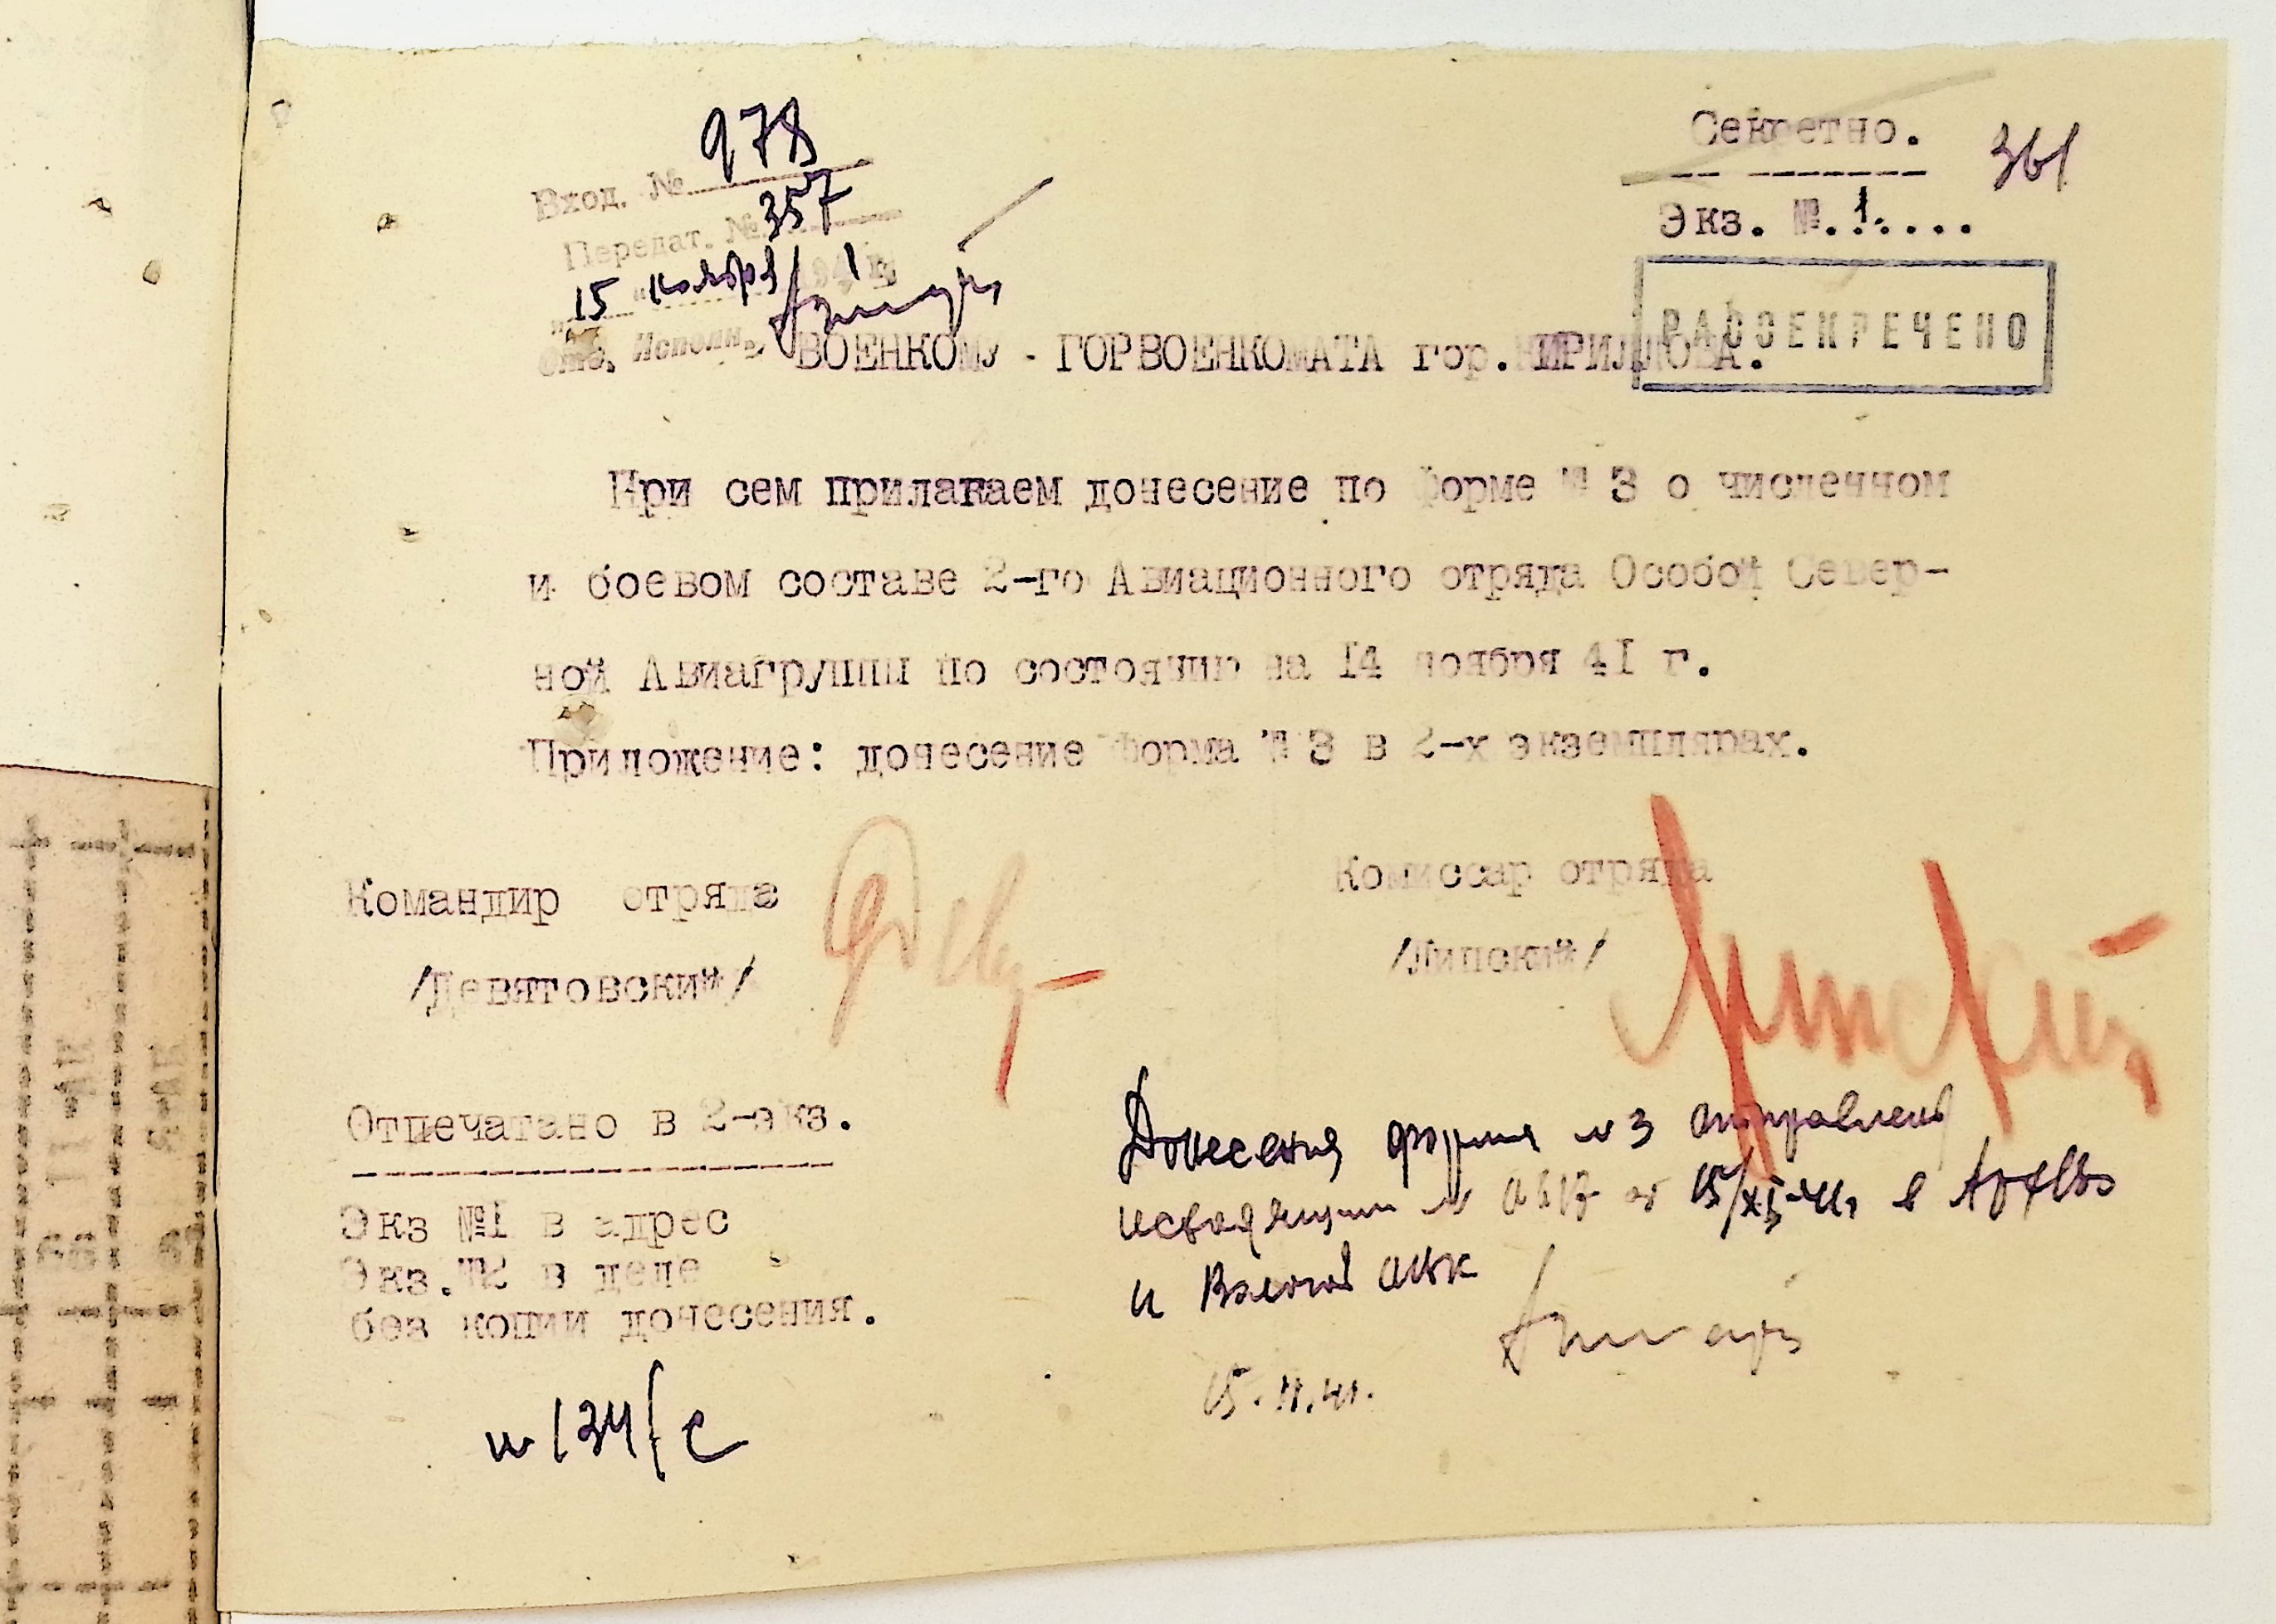 Секретно.
361
Экз. №.1.....
Вход. № 978
Передат. № 357
"15" ноября 1941 г.
Отв. Исполн.
РАССЕКРЕЧЕНО
ВОЕНКОМУ - ГОРВОЕНКОМАТА гор. КИРИЛЛОВА.
При сем прилагаем донесение по форме № 3 о численном
и боевом составе 2-го Авиационного отряда Особой Север-
ной Авиагруппы по состоянию на 14 ноября 41 г.
Приложение: донесение форма № 3 в 2-х экземплярах.
Командир отряда
/Девятовский/
Комиссар отряда
/Липский/
Липский
Отпечатано в 2-экз.
Экз №1 в адрес
Экз.№2 в деле
без копии донесения.
№ 134/с
Донесения форма № 3 отправлены
исходящим № от 15/XI-41г в АрхВО
и Вологод ОВК
15.11.41.